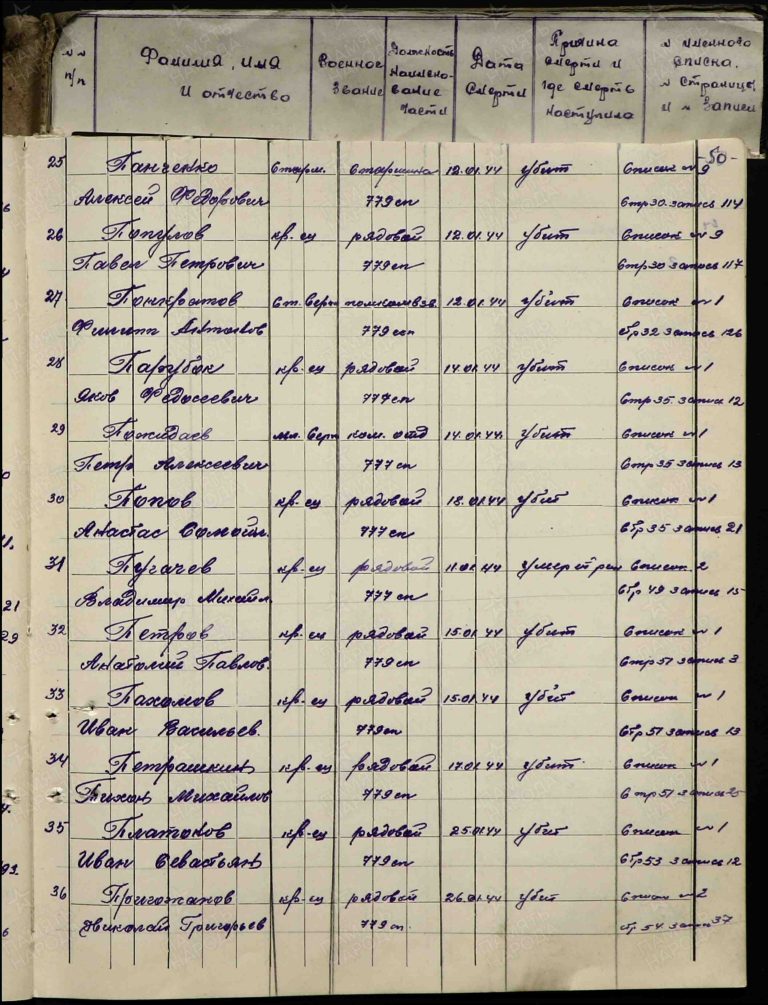 №№ п/п Фамилия, имя и отчество Военное звание Должность наимено- вание части Дата смерти Причина смерти и где смерть наступила № именного списка, № страницы и № записи
-50-
25 Панченко Старш. Старшина 12.01.44 убит Список № 9
Алексей Федорович 779 сп Стр 30 запись 114
26 Популов кр-ец рядовой 12.01.44 убит Список № 9
Павел Петрович 779 сп Стр 30 запись 117
27 Понкратов Ст. Серж помкомвзв. 12.01.44 убит Список № 1
Филипп 779 сп Стр 32 запись 126
28 Парубок кр-ец рядовой 14.01.44 убит Список № 1
Яков Федосеевич 777 сп Стр 35 запись 12
29 Пожидаев мл. Серж ком. отд 14.01.44 убит Список № 1
Петр Алексеевич 777 сп Стр 35 запись 13
30 Попов кр-ец рядовой 18.01.44 убит Список № 1
Анастас Самойл. 777 сп Стр 35 запись 21
31 Пугачев кр-ец рядовой 11.01.44 умер от ран Список 2
Владимир Михайл. 777 сп Стр 49 запись 15
32 Петров кр-ец рядовой 15.01.44 убит Список № 1
Анатолий Павлов. 779 сп Стр 51 запись 3
33 Пахомов кр-ец рядовой 15.01.44 убит Список № 1
Иван Васильев. 779 сп Стр 51 запись 13
34 Петрашкин кр-ец рядовой 17.01.44 убит Список № 1
Тихон Михайлов 779 сп Стр 51 запись 25
35 Платонов кр-ец рядовой 25.01.44 убит Список № 1
Иван Севастьян 779 сп Стр 53 запись 12
36 Пригожанов кр-ец рядовой 26.01.44 убит Список № 2
Николай Григорьев 779 сп. стр 54 запись 37